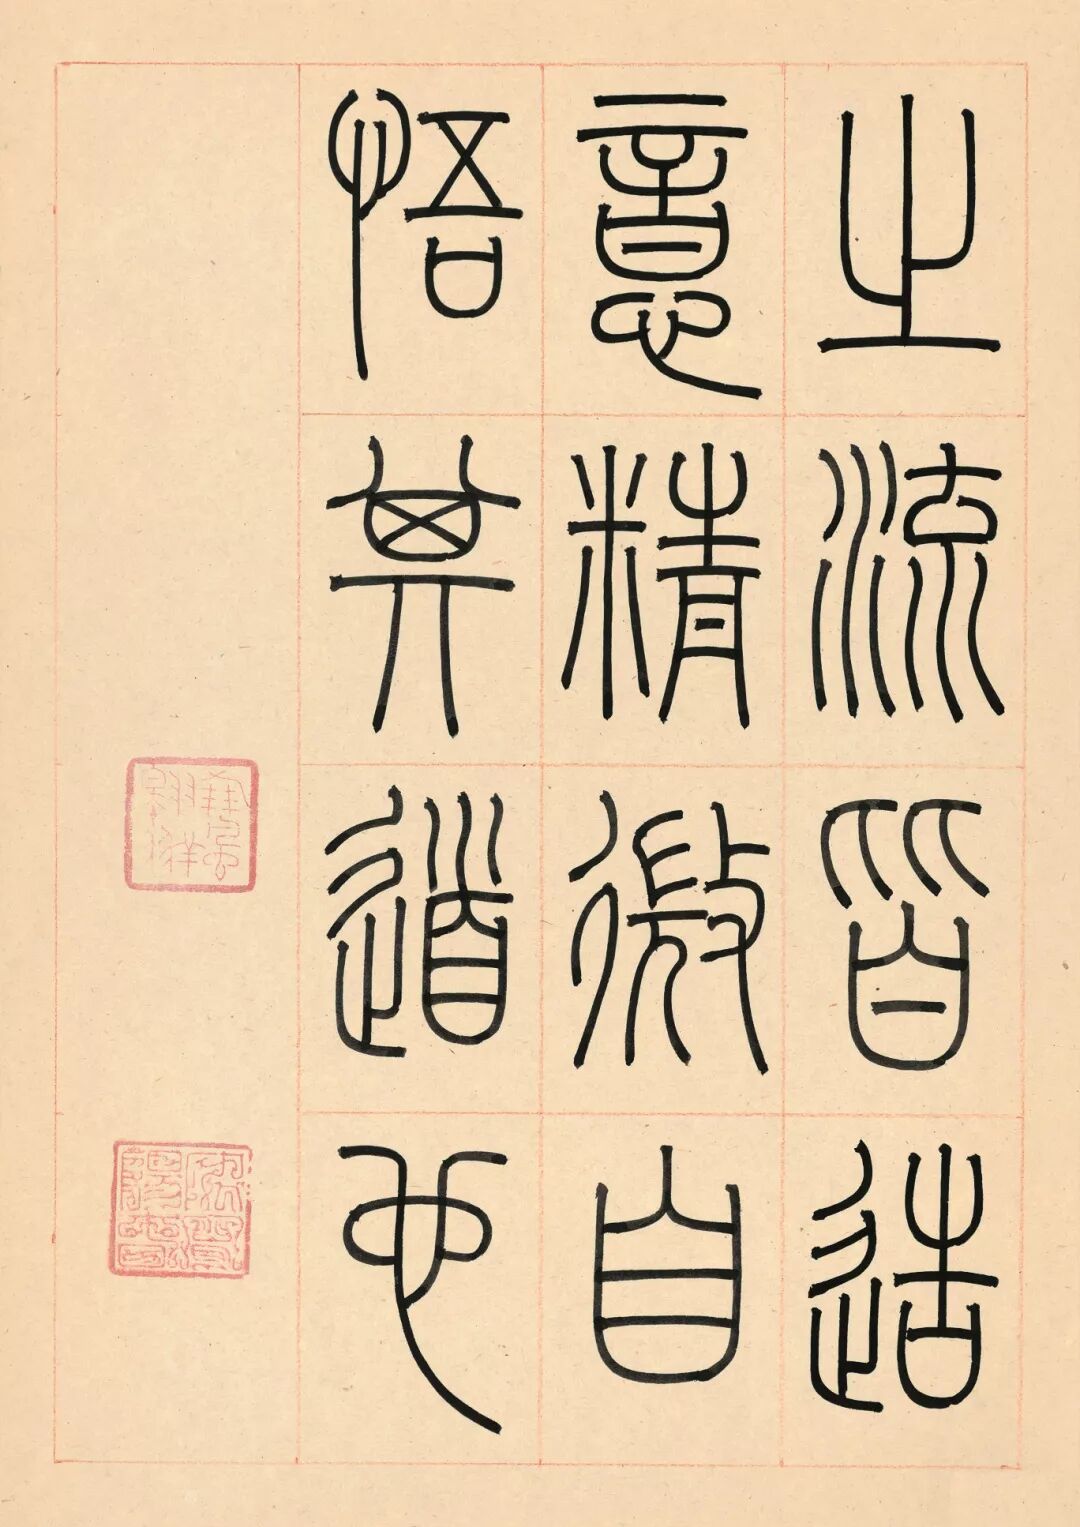 之流皆造
意精微自
悟其道也